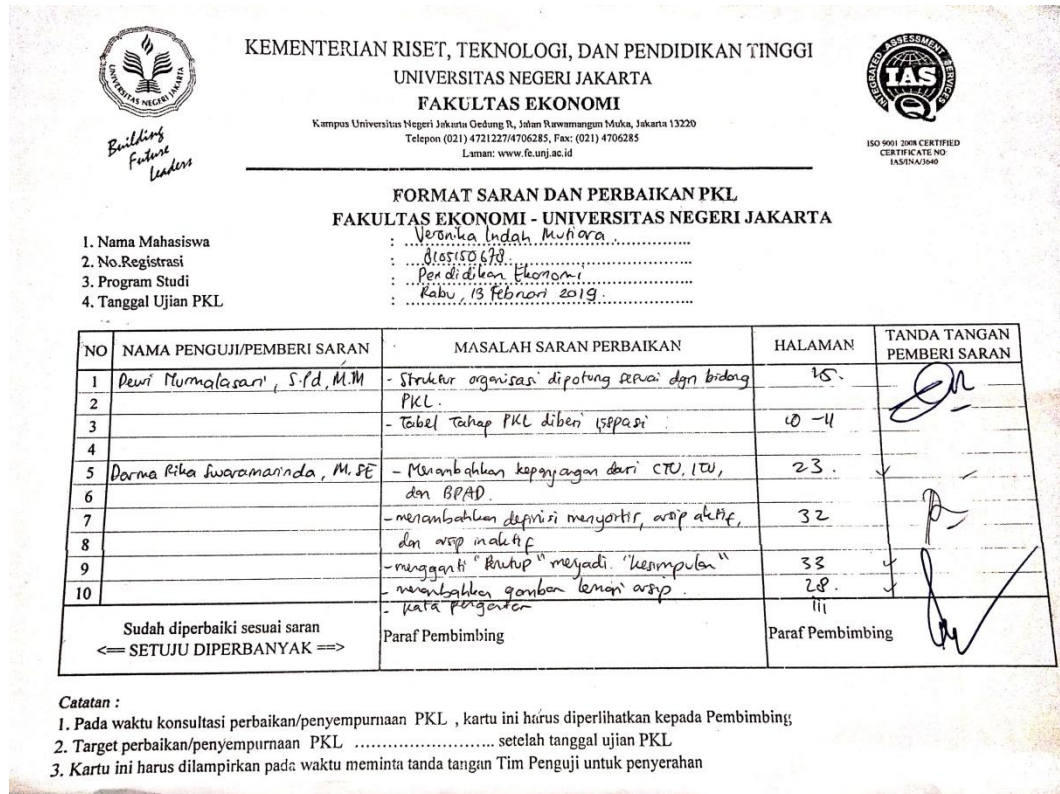 KEMENTERIAN RISET, TEKNOLOGI, DAN PENDIDIKAN TINGGI
UNIVERSITAS NEGERI JAKARTA
FAKULTAS EKONOMI
Kampus Universitas Negeri Jakarta Gedung R, Jalan Rawamangun Muka, Jakarta 13220
Telepon (021) 4721227/4706285, Fax: (021) 4706285
Laman: www.fe.unj.ac.id
UNIVERSITAS NEGERI JAKARTA
Building
Future
Leaders
INTEGRATED ASSESSMENT SERVICES
IAS
ISO 9001 2008 CERTIFIED
CERTIFICATE NO
IAS/INA/3640
FORMAT SARAN DAN PERBAIKAN PKL
FAKULTAS EKONOMI - UNIVERSITAS NEGERI JAKARTA
1. Nama Mahasiswa : Veronika Indah Mutiara
2. No.Registrasi : 8105150678
3. Program Studi : Pendidikan Ekonomi
4. Tanggal Ujian PKL : Rabu, 13 Februari 2019.
NO NAMA PENGUJI/PEMBERI SARAN MASALAH SARAN PERBAIKAN HALAMAN TANDA TANGAN PEMBERI SARAN
1 Dewi Nurmalasari, S.Pd, M.M - Struktur organisasi dipotong sesuai dgn bidang 15.
2 PKL.
3 - Tabel Tahap PKL diberi 1 spasi 10 - 11
4
5 Darma Rika Swaramarinda, M.SE - Menambahkan kepanjangan dari CTU, ITU, 23.
6 dan BPAD.
7 - menambahkan definisi menyortir, arsip aktif, 32
8 dan arsip inaktif
9 - mengganti "Penutup" menjadi "kesimpulan" 33
10 - menambahkan gambar lemari arsip. 28.
- kata pengantar iii
Sudah diperbaiki sesuai saran
<== SETUJU DIPERBANYAK ==>
Paraf Pembimbing Paraf Pembimbing
Catatan :
1. Pada waktu konsultasi perbaikan/penyempurnaan PKL , kartu ini harus diperlihatkan kepada Pembimbing
2. Target perbaikan/penyempurnaan PKL ........................... setelah tanggal ujian PKL
3. Kartu ini harus dilampirkan pada waktu meminta tanda tangan Tim Penguji untuk penyerahan